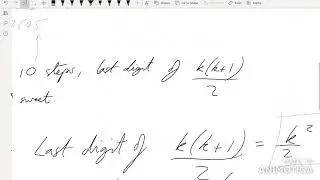 10 steps, last digit of k(k+1)/2
sweet.
Last digit of k(k+1)/2 = k²/2
ANIMOTICA